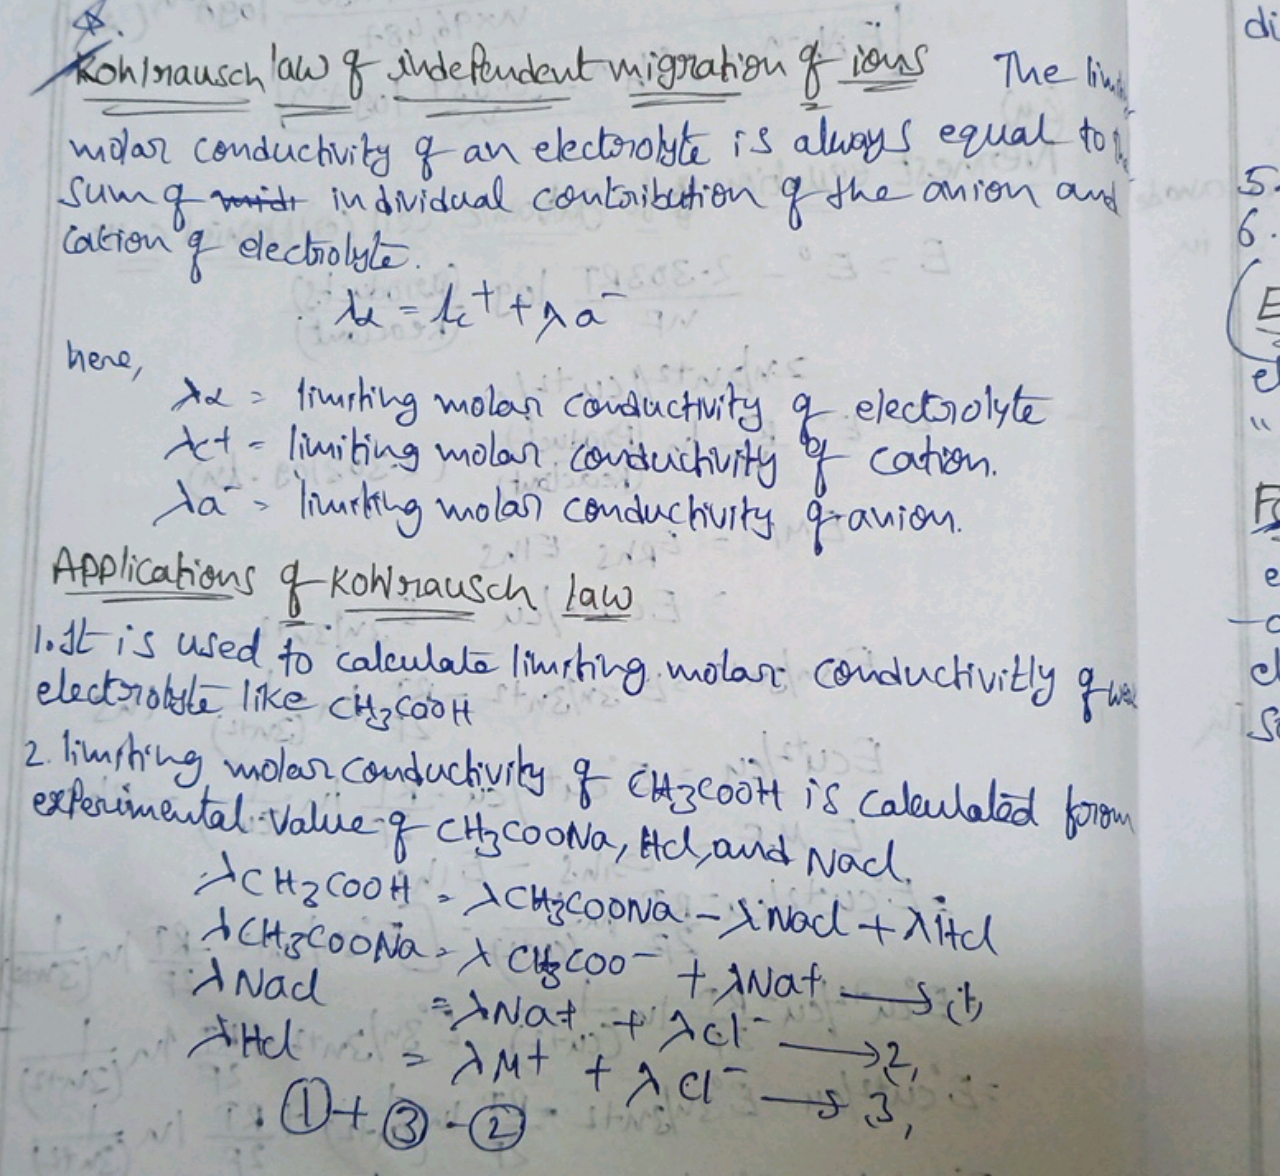 Kohlrausch law of independent migration of ions The
molar conductivity of an electrolyte is always equal to
sum of individual contribution of the anion and
cation of electrolyte.
λα = λc+ + λa-
here,
λα = limiting molar conductivity of electrolyte
λc+ = limiting molar conductivity of cation.
λa- = limiting molar conductivity of anion.
Applications of Kohlrausch law
1. It is used to calculate limiting molar conductivitly of
electrolyte like CH3COOH
2. limiting molar conductivity of CH3COOH is calculated form
experimental value of CH3COONa, Hcl, and Nacl.
λCH3COOH = λCH3COONa - λNacl + λHcl
λCH3COONa = λCH3COO- + λNa+ → (1,
λNacl = λNa+ + λCl- → 2,
λHcl = λM+ + λCl- → 3,
① + ③ - ②
di
5.
6.